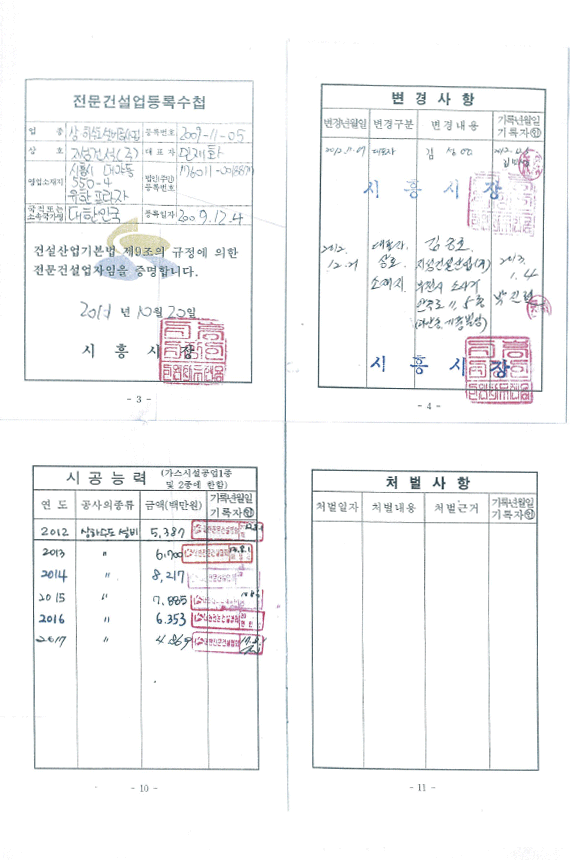 전문건설업등록수첩
업 종 상·하수도설비공사업 등록번호 2009-11-05
상 호 지성건설(주) 대표자 민재화
영업소재지 시흥시 대야동 550-4 유한프라자 법인(주민)등록번호
국적또는소속국가명 대한민국 등록일자 2009.12.4
건설산업기본법 제9조의 규정에 의한
전문건설업자임을 증명합니다.
년 10월 20일
시 흥 시 장
- 3 -
변 경 사 항
변경년월일 변경구분 변경내용 기록년월일 기록자㊞
대표자 김
시 흥 시 장
2012. 12. 21 대표자 김 2013. 1. 4
상호 지성건설산업(주)
소재지
시 흥 시 장
- 4 -
시 공 능 력 (가스시설공업1종 및 2종에 한함)
연 도 공사의종류 금액(백만원) 기록년월일 기록자㊞
2012 상하수도설비 5,387
2013 〃 6,700
2014 〃 8,217
2015 〃 7,885
2016 〃 6,353
2017 〃
- 10 -
처 벌 사 항
처벌일자 처벌내용 처벌근거 기록년월일 기록자㊞
- 11 -